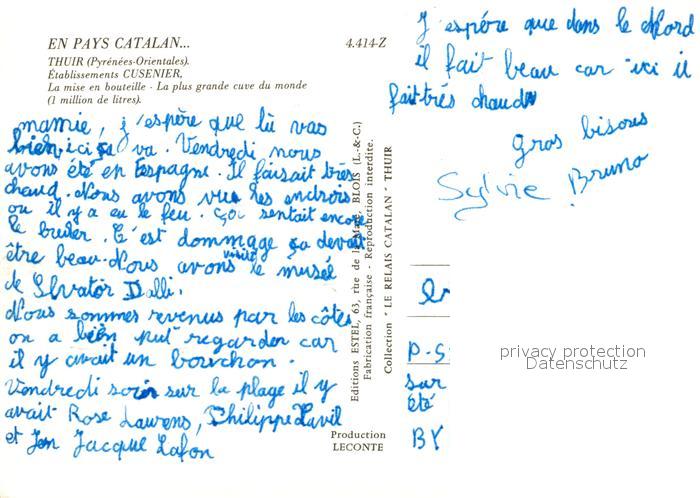 EN PAYS CATALAN...
4.414-Z
THUIR (Pyrénées-Orientales).
Établissements CUSENIER,
La mise en bouteille - La plus grande cuve du monde
(1 million de litres).
mamie, j'espère que tu vas
bien, ici ça va. Vendredi nous
avons été en Espagne. Il faisait très
chaud. Nous avons vue les endrois
ou il y a eu le feu. Ça sentait encore
le bruler. C'est dommage ça devait
être beau. Nous avons visité le musée
de Slvator Dalli.
Nous sommes revenus par les côtes
on a bien put regarder car
il y avait un bouchon.
Vendredi soir sur la plage il y
avait Rose Laurens, Philippe Lavil
et Jen Jacque Lafon
J'espére que dans le Nord
il fait beau car ici il
fait très chaud
gros bisous
Sylvie Bruno
P-S
sur
été
BY
Editions ESTEL, 63, rue de la Mare, BLOIS (L.-&-C.)
Fabrication française - Reproduction interdite.
Collection " LE RELAIS CATALAN " THUIR
Production
LECONTE
privacy protection
Datenschutz